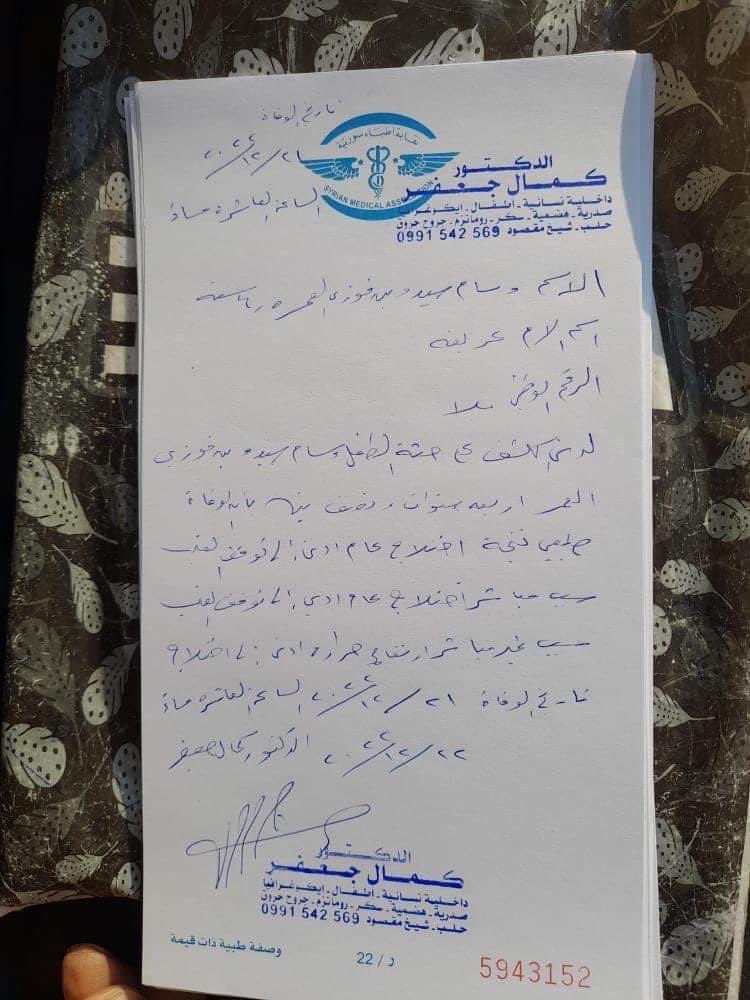 تاريخ الوفاة
٢٠٢٢/١٢/٢١
الساعة العاشرة مساءً
نقابة أطباء سورية
SYRIAN MEDICAL ASSOCIATION
الدكتور
كمال جعفر
داخلية نسائية - أطفال - ايكوغرافيا
صدرية - هضمية - سكر - روماتزم - جروح حروق
حلب - شيخ مقصود 0991 542 569
الاسم وسام سيدو بن فوزي العمر
اسم الام عريفه
الرقم الوطني بلا
لدى الكشف على جثة الطفل وسام سيدو بن فوزي
العمر اربعه سنوات ونصف تبين بأن الوفاة
طبيعي نتيجة اختلاج عام ادى الى توقف القلب
سبب مباشر اختلاج عام ادى الى توقف القلب
سبب غير مباشر ارتفاع حراره ادى الى اختلاج
تاريخ الوفاة ٢٠٢٢/١٢/٢١ الساعة العاشره مساءً
٢٠٢٢/١٢/٢٢ الدكتور كمال جعفر
الدكتور
كمال جعفر
داخلية نسائية - أطفال - ايكوغرافيا
صدرية - هضمية - سكر - روماتزم - جروح حروق
حلب - شيخ مقصود 0991 542 569
وصفة طبية ذات قيمة
د / 22
5943152